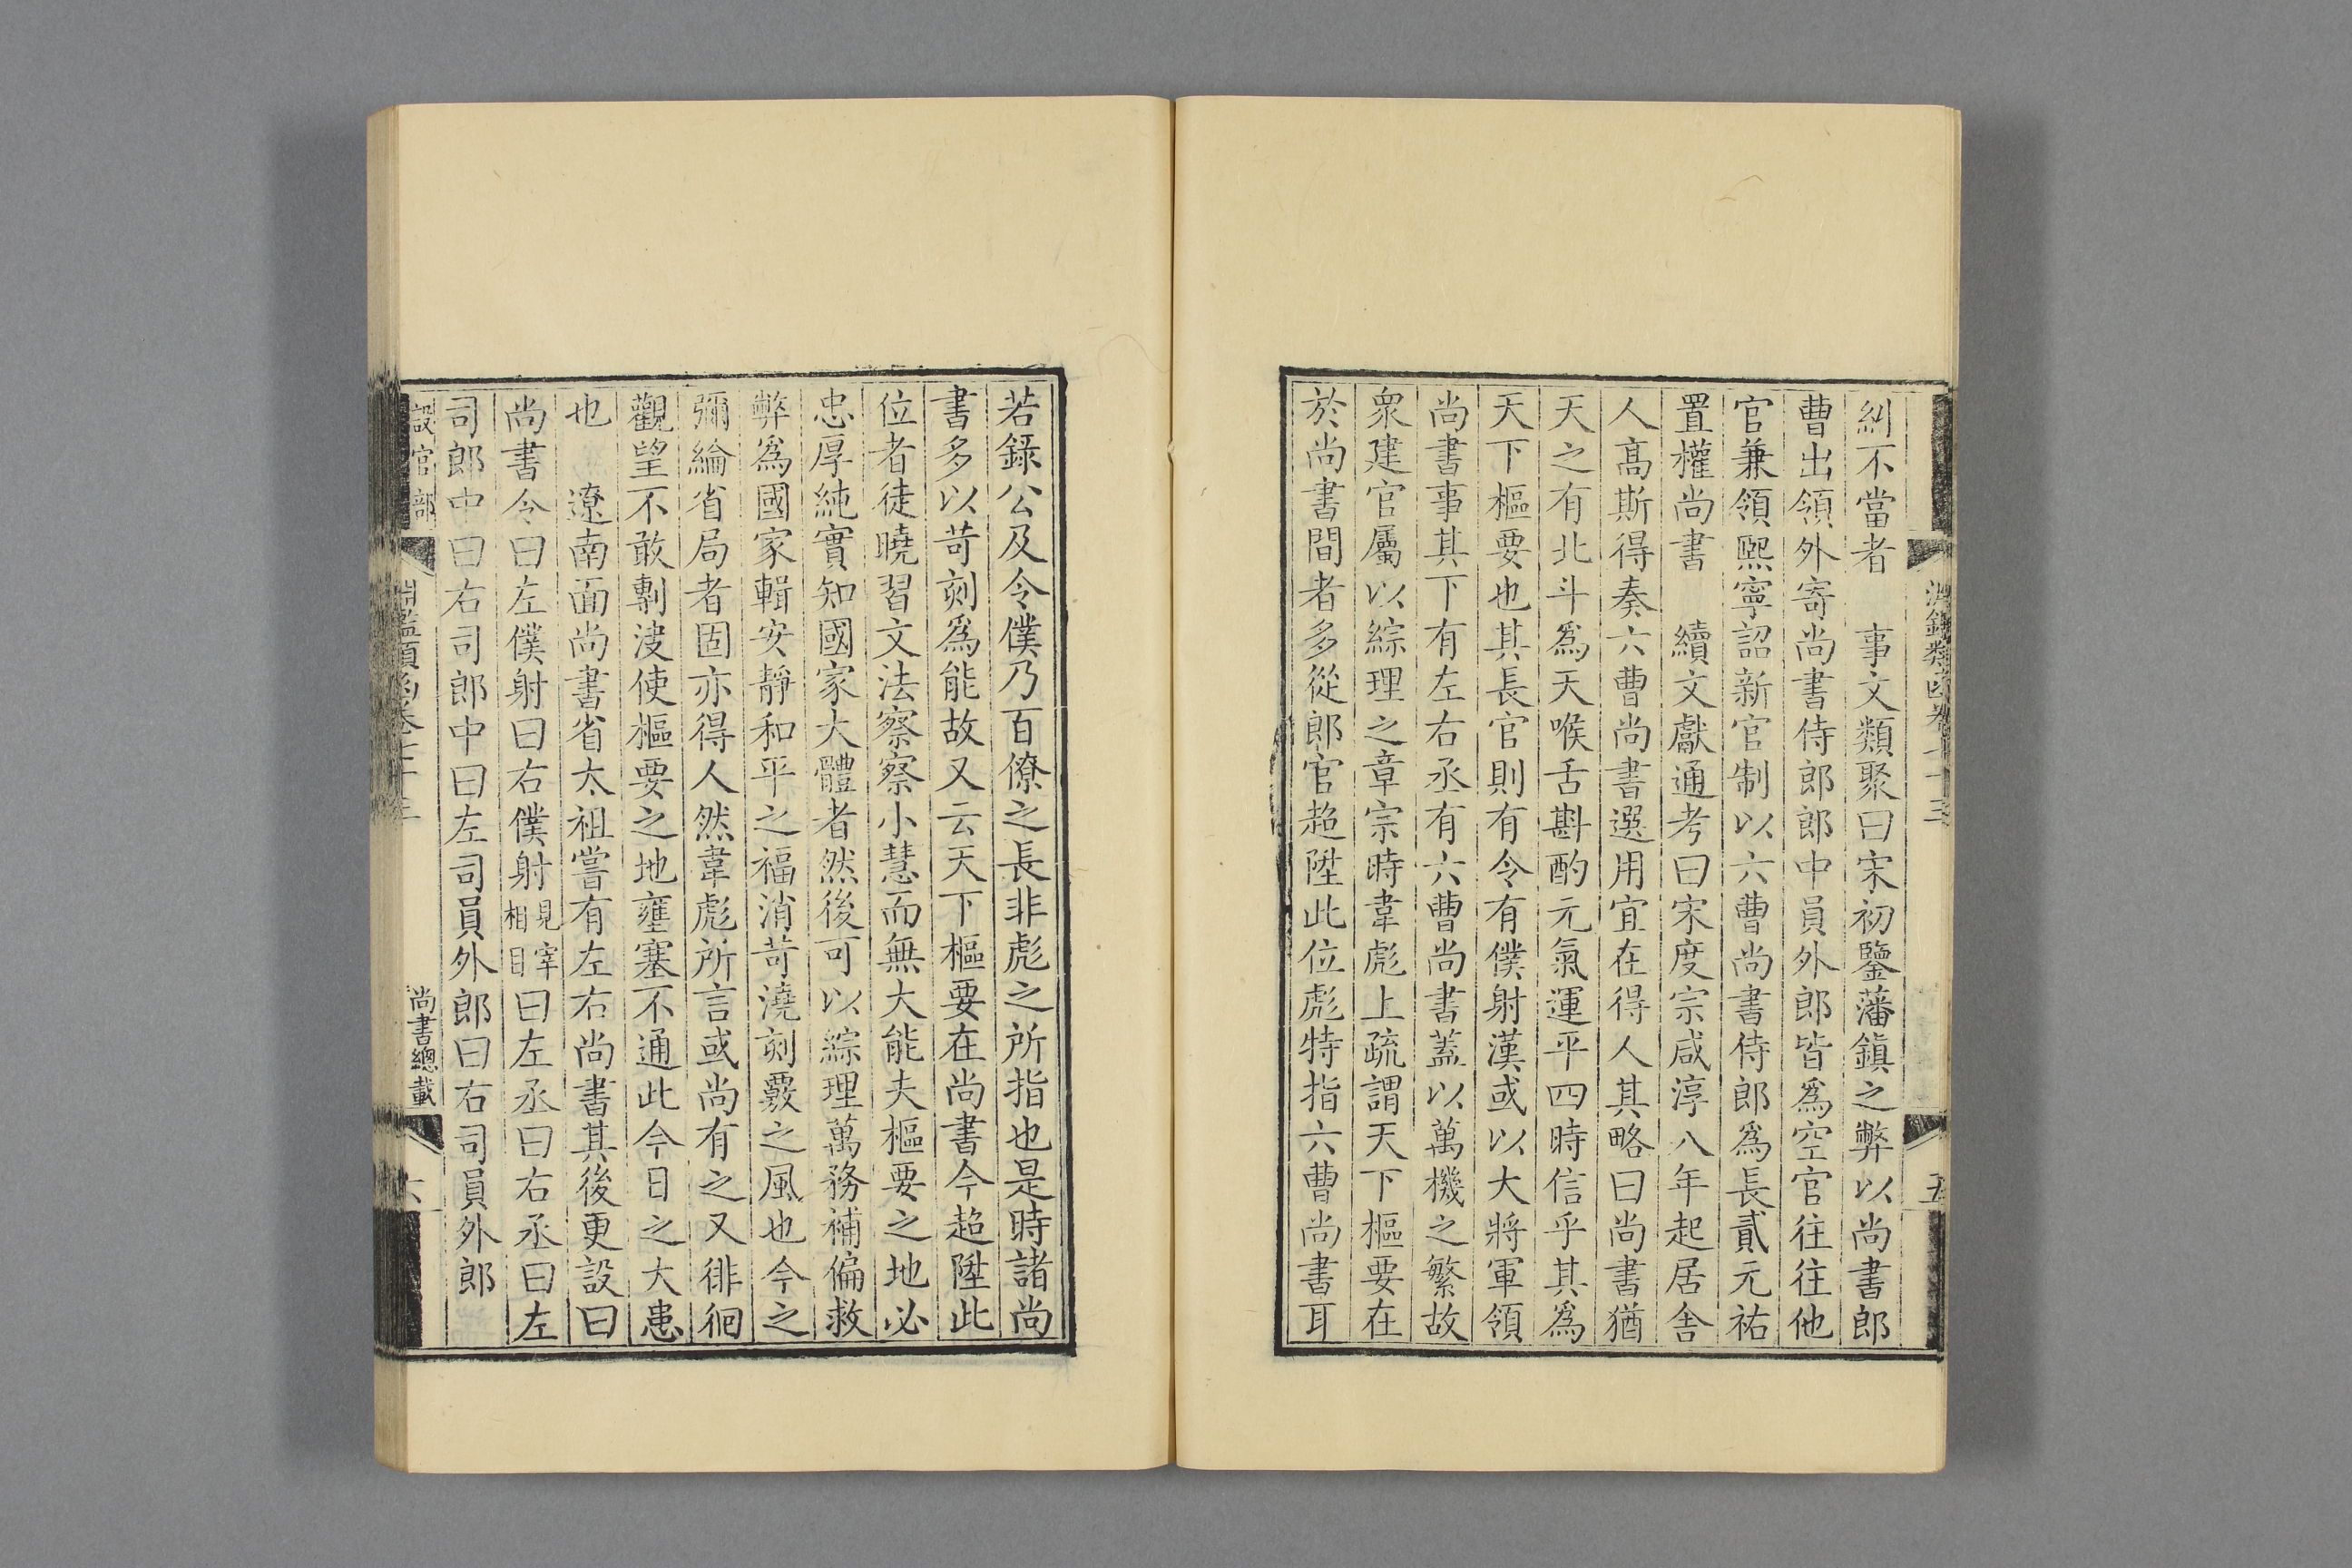 糾不當者　事文類聚曰宋初鑒藩鎮之弊以尚書郎
曹出領外寄尚書侍郎郎中員外郎皆爲空官往往他
官兼領熙寧詔新官制以六曹尚書侍郎爲長貳元祐
置權尚書　續文獻通考曰宋度宗咸淳八年起居舍
人髙斯得奏六曹尚書選用宜在得人其略曰尚書猶
天之有北斗爲天喉舌斟酌元氣運平四時信乎其爲
天下樞要也其長官則有令有僕射漢或以大將軍領
尚書事其下有左右丞有六曹尚書蓋以萬機之繁故
衆建官屬以綜理之章宗時韋彪上疏謂天下樞要在
於尚書間者多從郎官超陞此位彪特指六曹尚書耳
若錄公及令僕乃百僚之長非彪之所指也是時諸尚
書多以苛刻爲能故又云天下樞要在尚書今超陞此
位者徒曉習文法察察小慧而無大能夫樞要之地必
忠厚純實知國家大體者然後可以綜理萬務補偏救
弊爲國家輯安靜和平之福消苛澆刻覈之風也今之
彌綸省局者固亦得人然韋彪所言或尚有之又徘徊
觀望不敢剸決使樞要之地壅塞不通此今日之大患
也　遼南面尚書省太祖嘗有左右尚書其後更設曰
尚書令曰左僕射曰右僕射見宰相目曰左丞曰右丞曰左
司郎中曰右司郎中曰左司員外郎曰右司員外郎
設官部
淵鑑類函卷七十三
尚書總載
六
淵鑑類函卷七十三
五